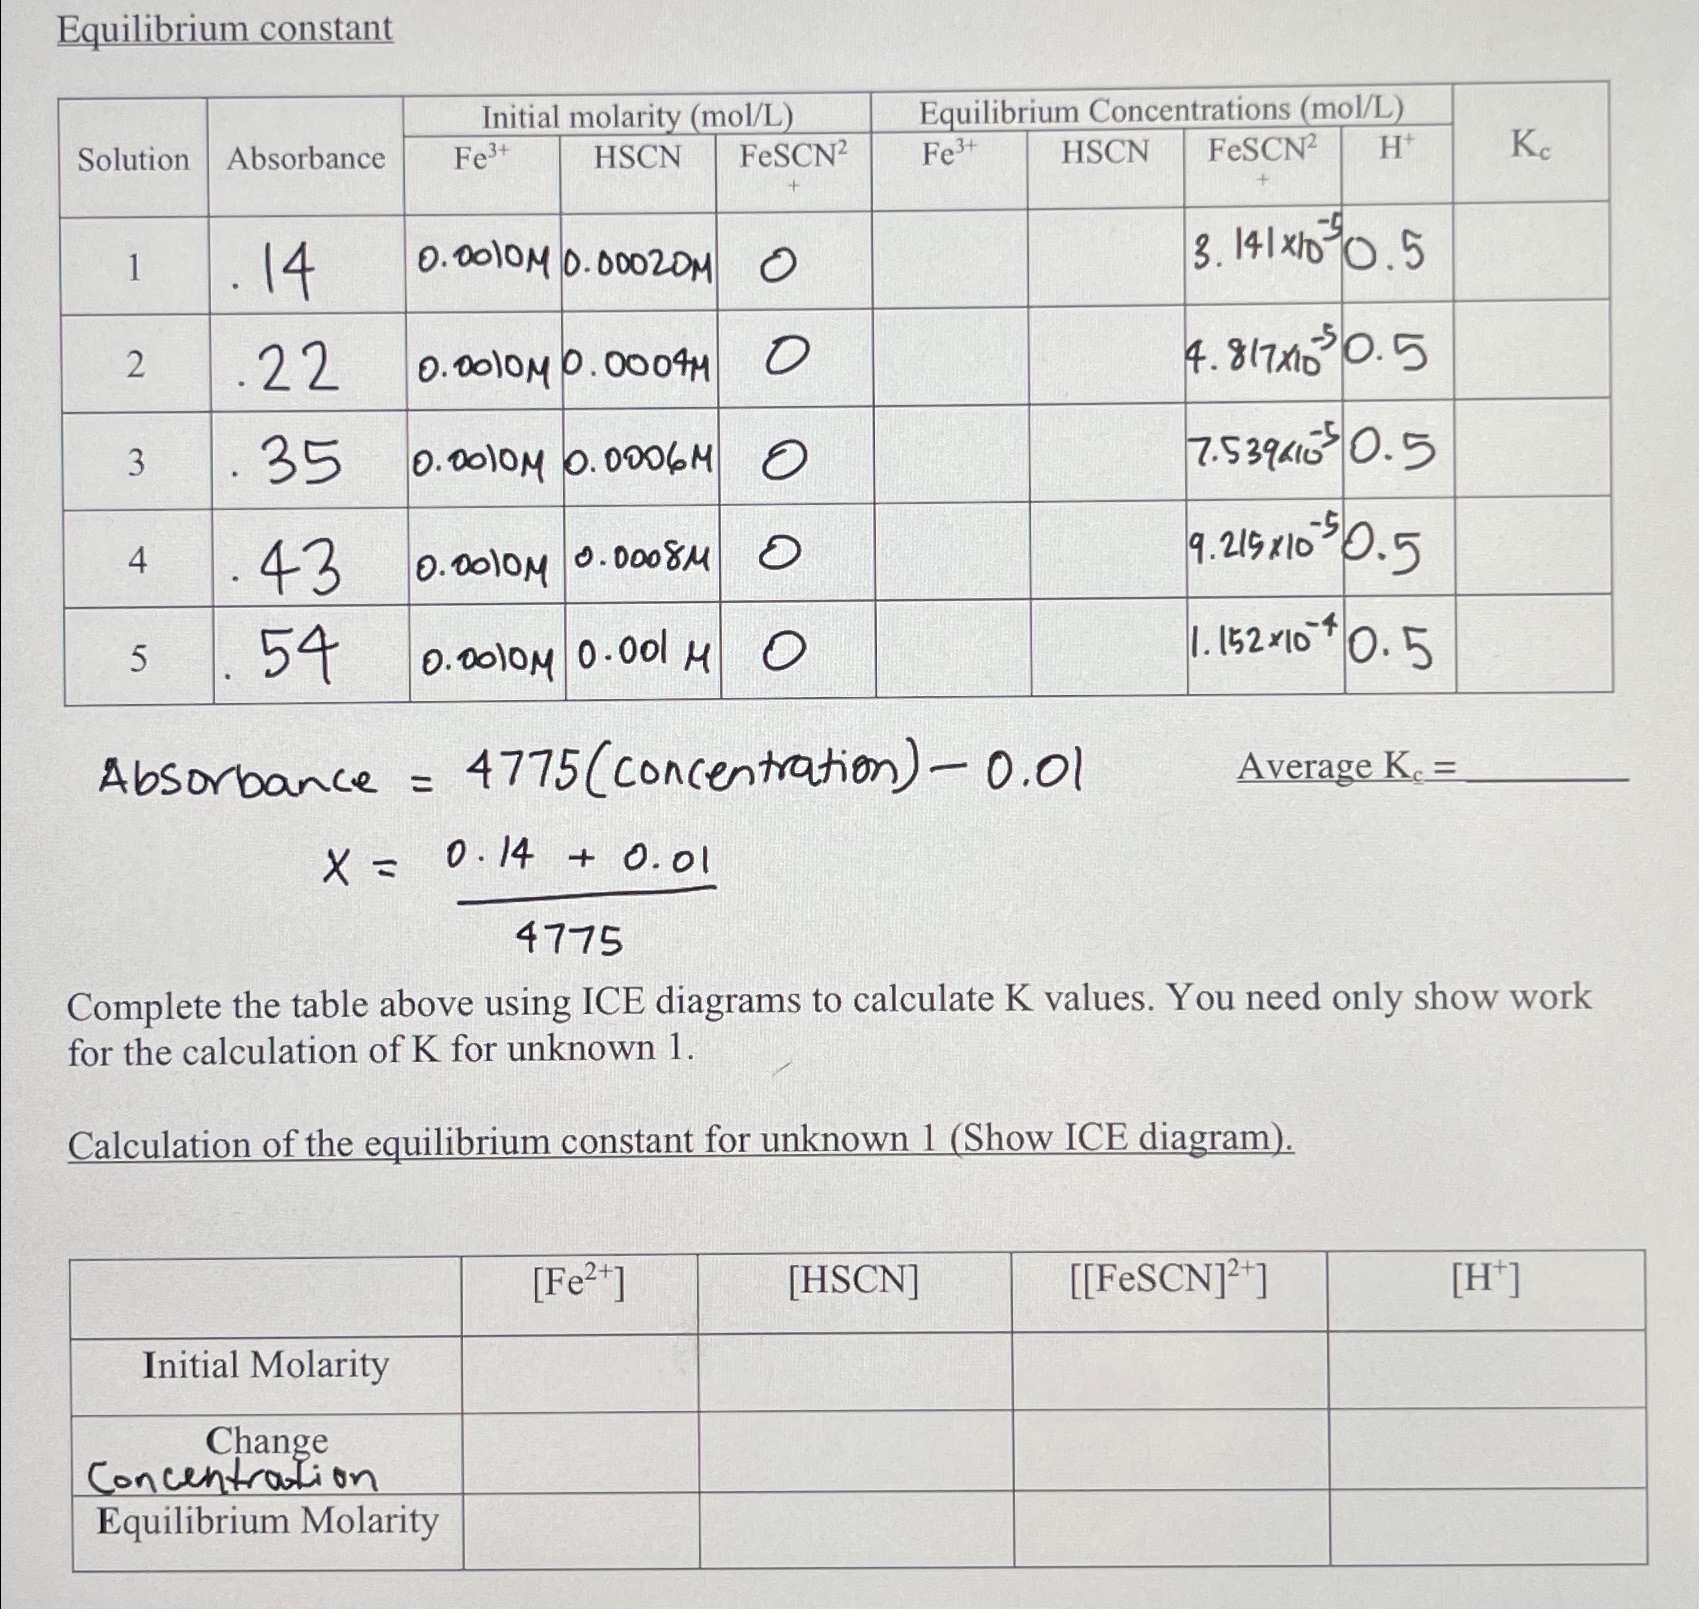 Equilibrium constant
Solution Absorbance Initial molarity (mol/L) Equilibrium Concentrations (mol/L) Kc
Fe³⁺ HSCN FeSCN² Fe³⁺ HSCN FeSCN² H⁺
+ +
1 .14 0.0010M 0.00020M 0 3.141x10⁻⁵ 0.5
2 .22 0.0010M 0.0004M 0 4.817x10⁻⁵ 0.5
3 .35 0.0010M 0.0006M 0 7.539x10⁻⁵ 0.5
4 .43 0.0010M 0.0008M 0 9.215x10⁻⁵ 0.5
5 .54 0.0010M 0.001 M 0 1.152x10⁻⁴ 0.5
Absorbance = 4775(concentration) - 0.01 Average Kc =
x = 0.14 + 0.01
4775
Complete the table above using ICE diagrams to calculate K values. You need only show work
for the calculation of K for unknown 1.
Calculation of the equilibrium constant for unknown 1 (Show ICE diagram).
[Fe²⁺] [HSCN] [[FeSCN]²⁺] [H⁺]
Initial Molarity
Change
Concentration
Equilibrium Molarity